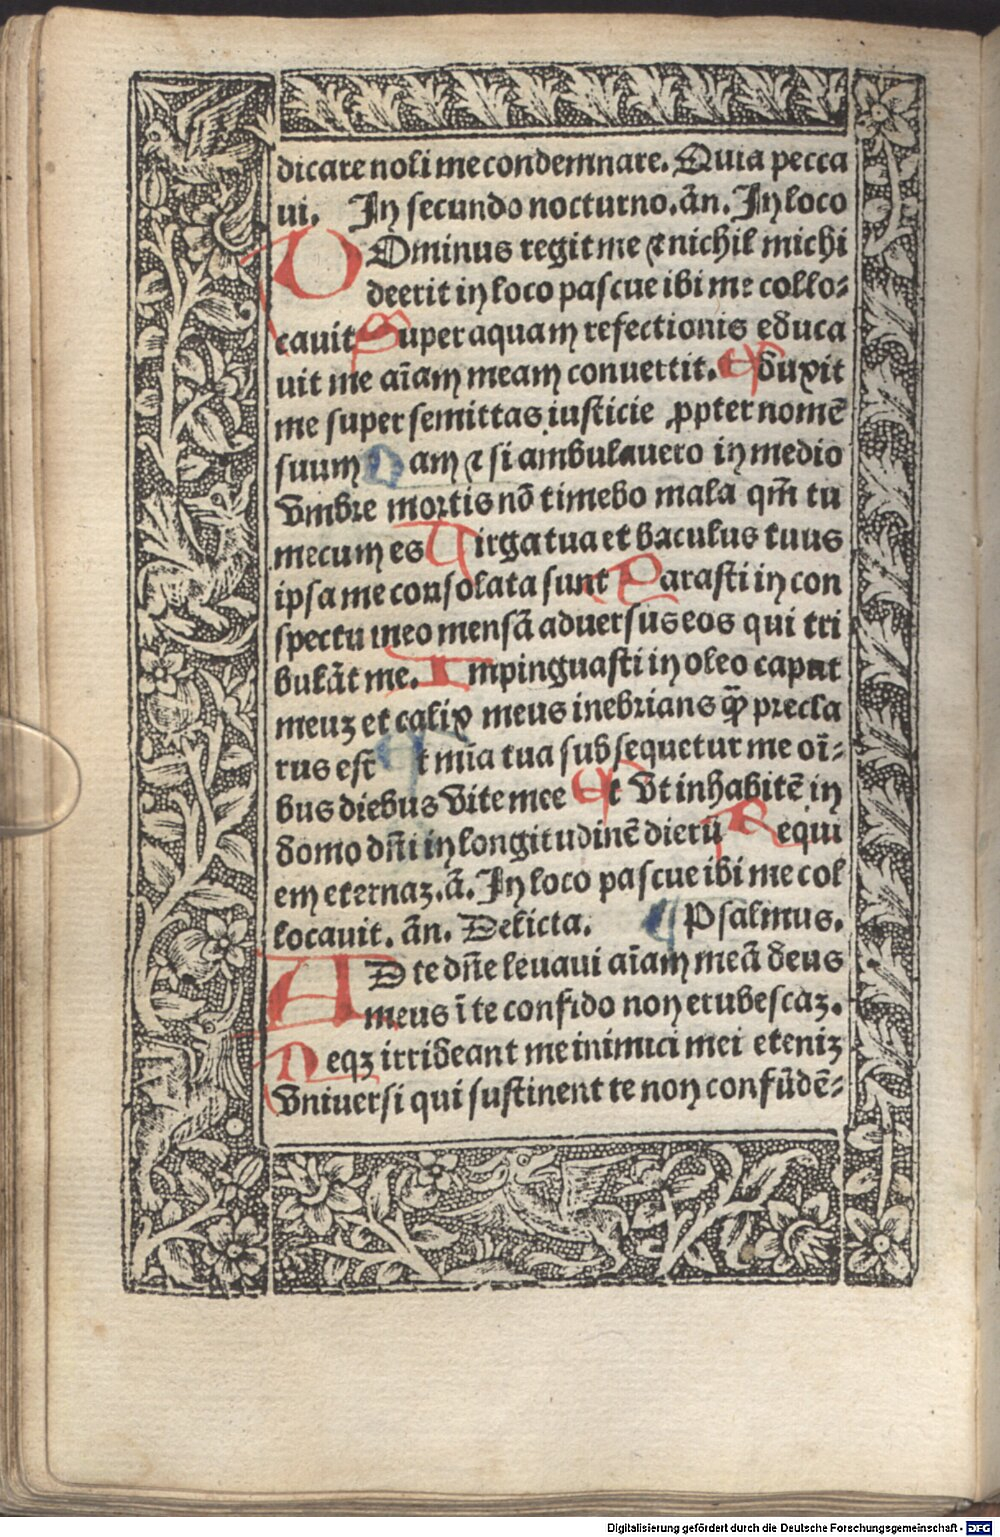 dicare noli me condemnare. Quia pecca
ui. In secundo nocturno. ān. In loco
DOminus regit me ⁊ nichil michi
deerit in loco pascue ibi me collo-
cauit Super aquam refectionis educa
uit me aīam meam conuertit. Eduxit
me super semittas iusticie ꝓpter nomē
suum Nam ⁊ si ambulauero in medio
vmbre mortis nō timebo mala qm̄ tu
mecum es Uirga tua et baculus tuus
ipsa me consolata sunt Parasti in con
spectu meo mensā aduersus eos qui tri
bulāt me. Impinguasti in oleo caput
meuꝫ et calix meus inebrians qȝ̄ precla
rus est Et mīa tua subsequetur me oī-
bus diebus vite mee Et vt inhabitē in
domo dn̄i in longitudinē dierū Requi
em eternaꝫ. ā. In loco pascue ibi me col
locauit. ān. Delicta. ¶ Psalmus.
AD te dn̄e leuaui aīam meā deus
meus ī te confido non erubescaꝫ.
Neqꝫ irrideant me inimici mei eteniꝫ
vniuersi qui sustinent te non confūdē-
Digitalisierung gefördert durch die Deutsche Forschungsgemeinschaft - DFG